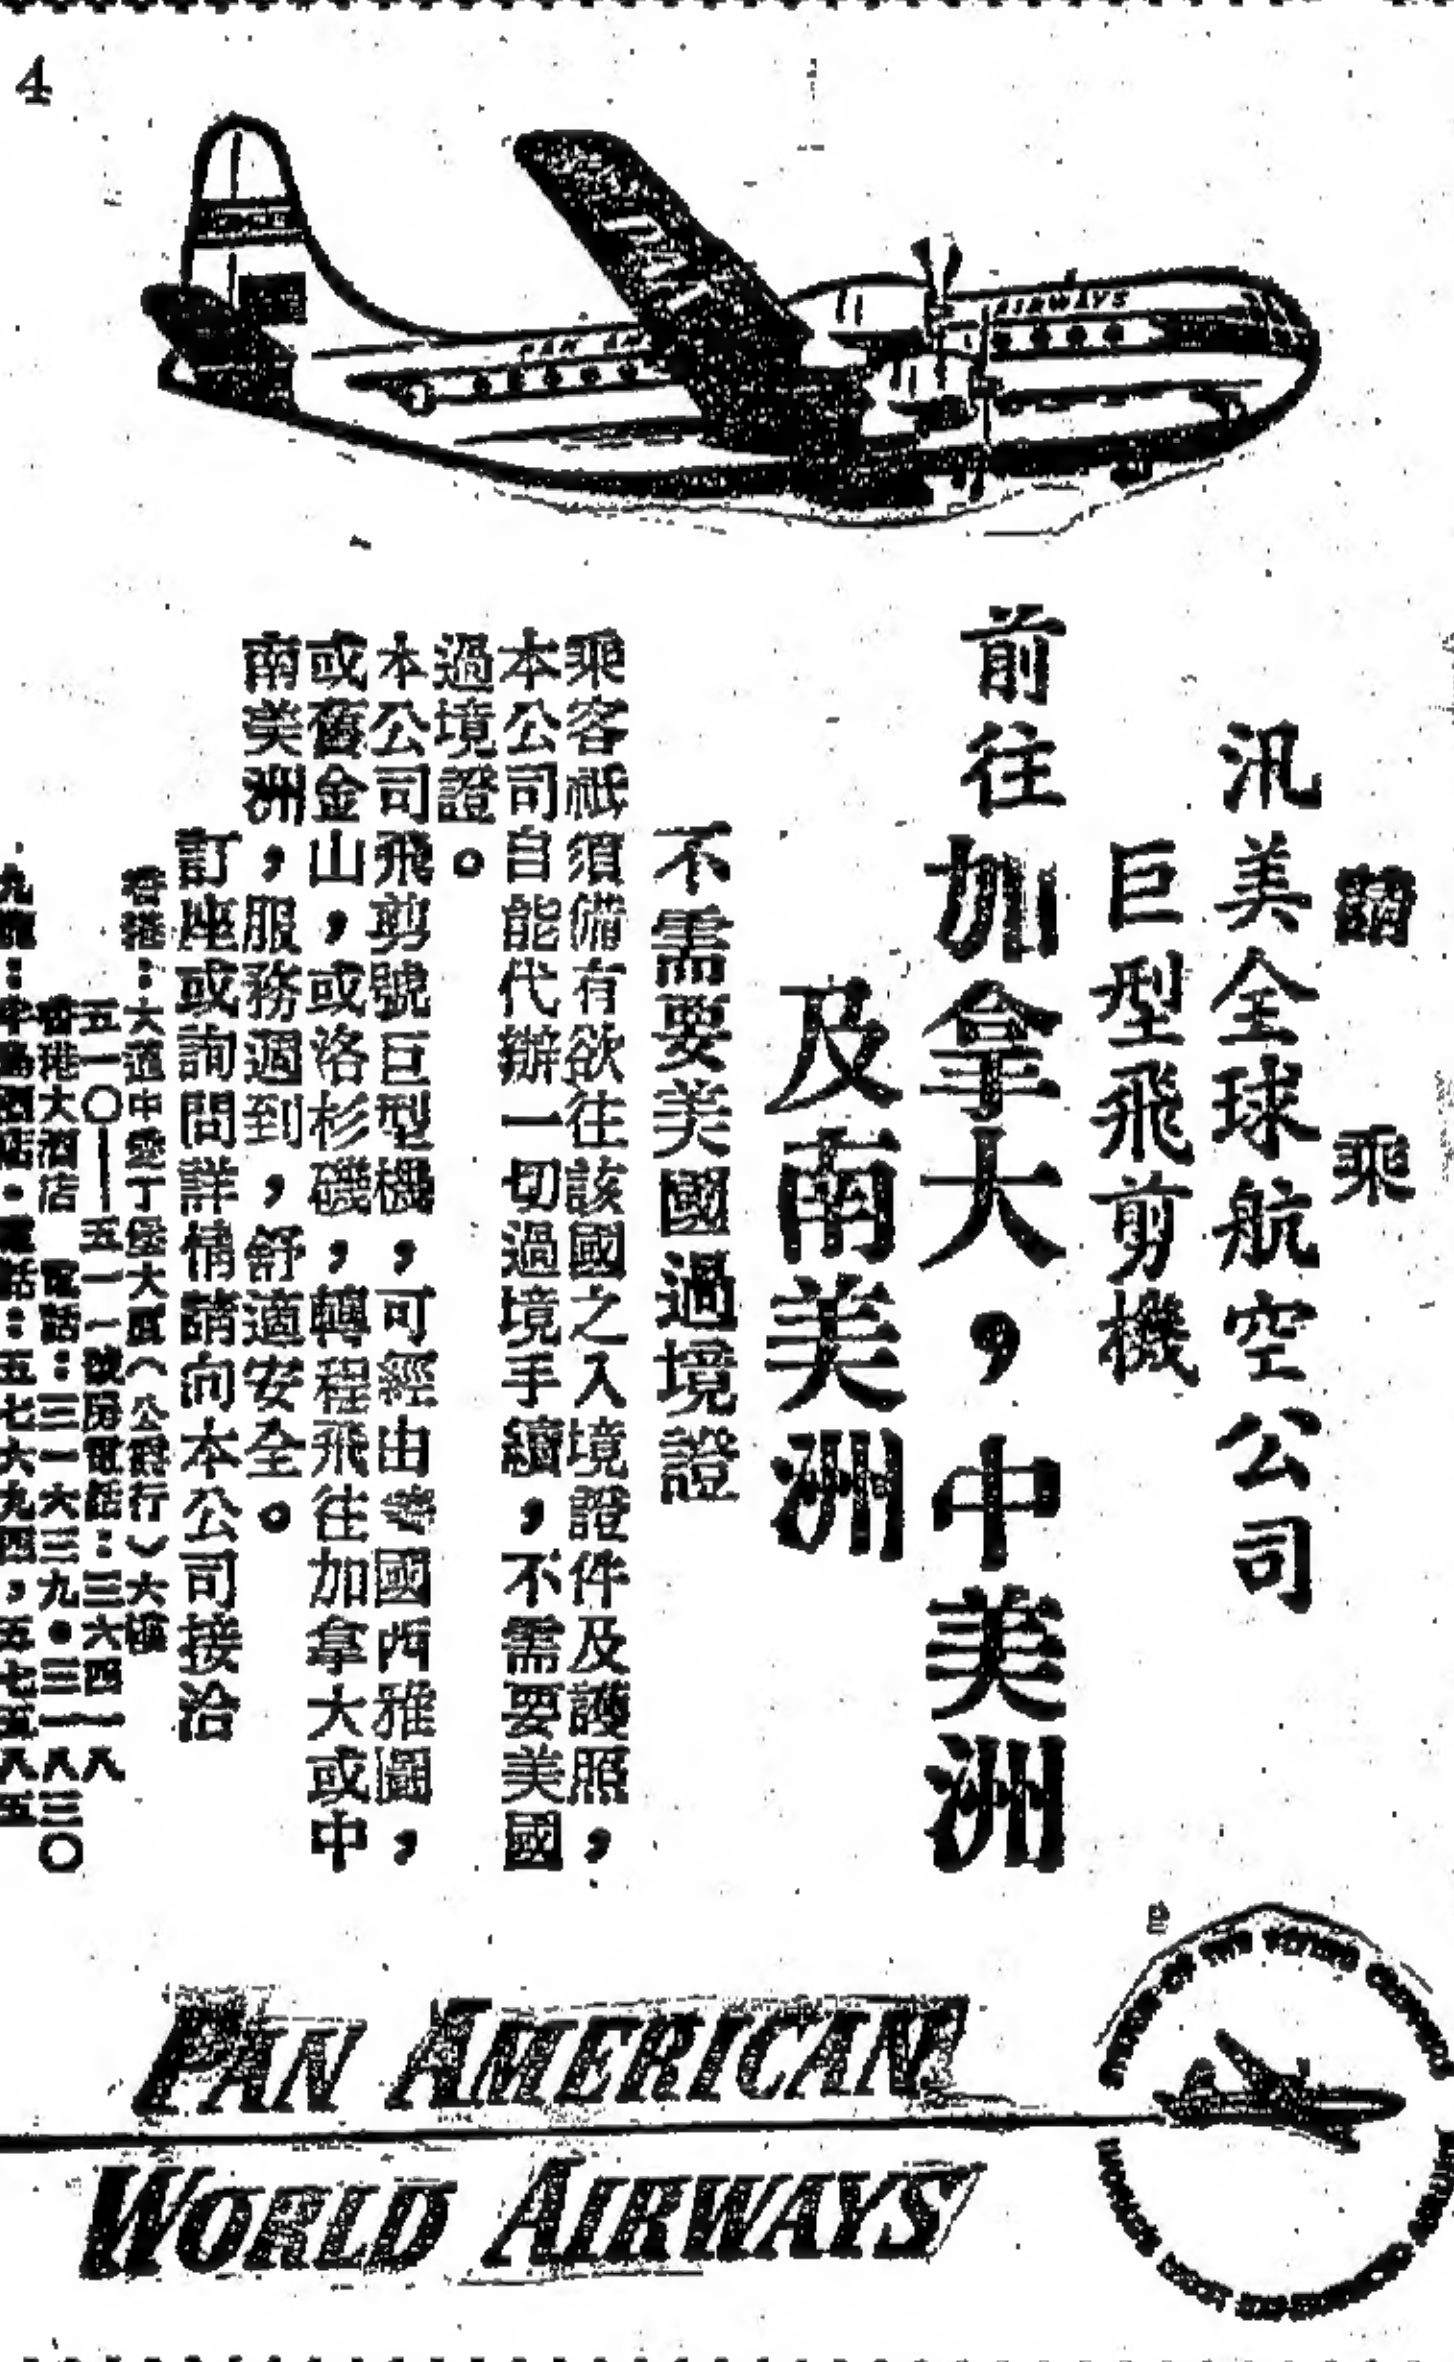 4
PAA
PAN AM
AIRWAYS
請乘
汎美全球航空公司
巨型飛剪機
前往加拿大，中美洲
及南美洲
不需要美國過境證
乘客祗須備有欲往該國之入境證件及護照，
本公司自能代辦一切過境手續，不需要美國
過境證。
本公司飛剪號巨型機，可經由美國西雅圖，
或舊金山，或洛杉磯，轉程飛往加拿大或中
南美洲，服務週到，舒適安全。
訂座或詢問詳情請向本公司接洽
香港：大道中亞丁堡大廈（公爵行）六樓
五一〇——五一一號房電話：三六四一八
香港大酒店 電話：三一六三九·三一八三〇
九龍：半島酒店·電話：五七六九四，五七五八五
PAN AMERICAN
WORLD AIRWAYS
SYSTEM OF THE FLYING CLIPPERS